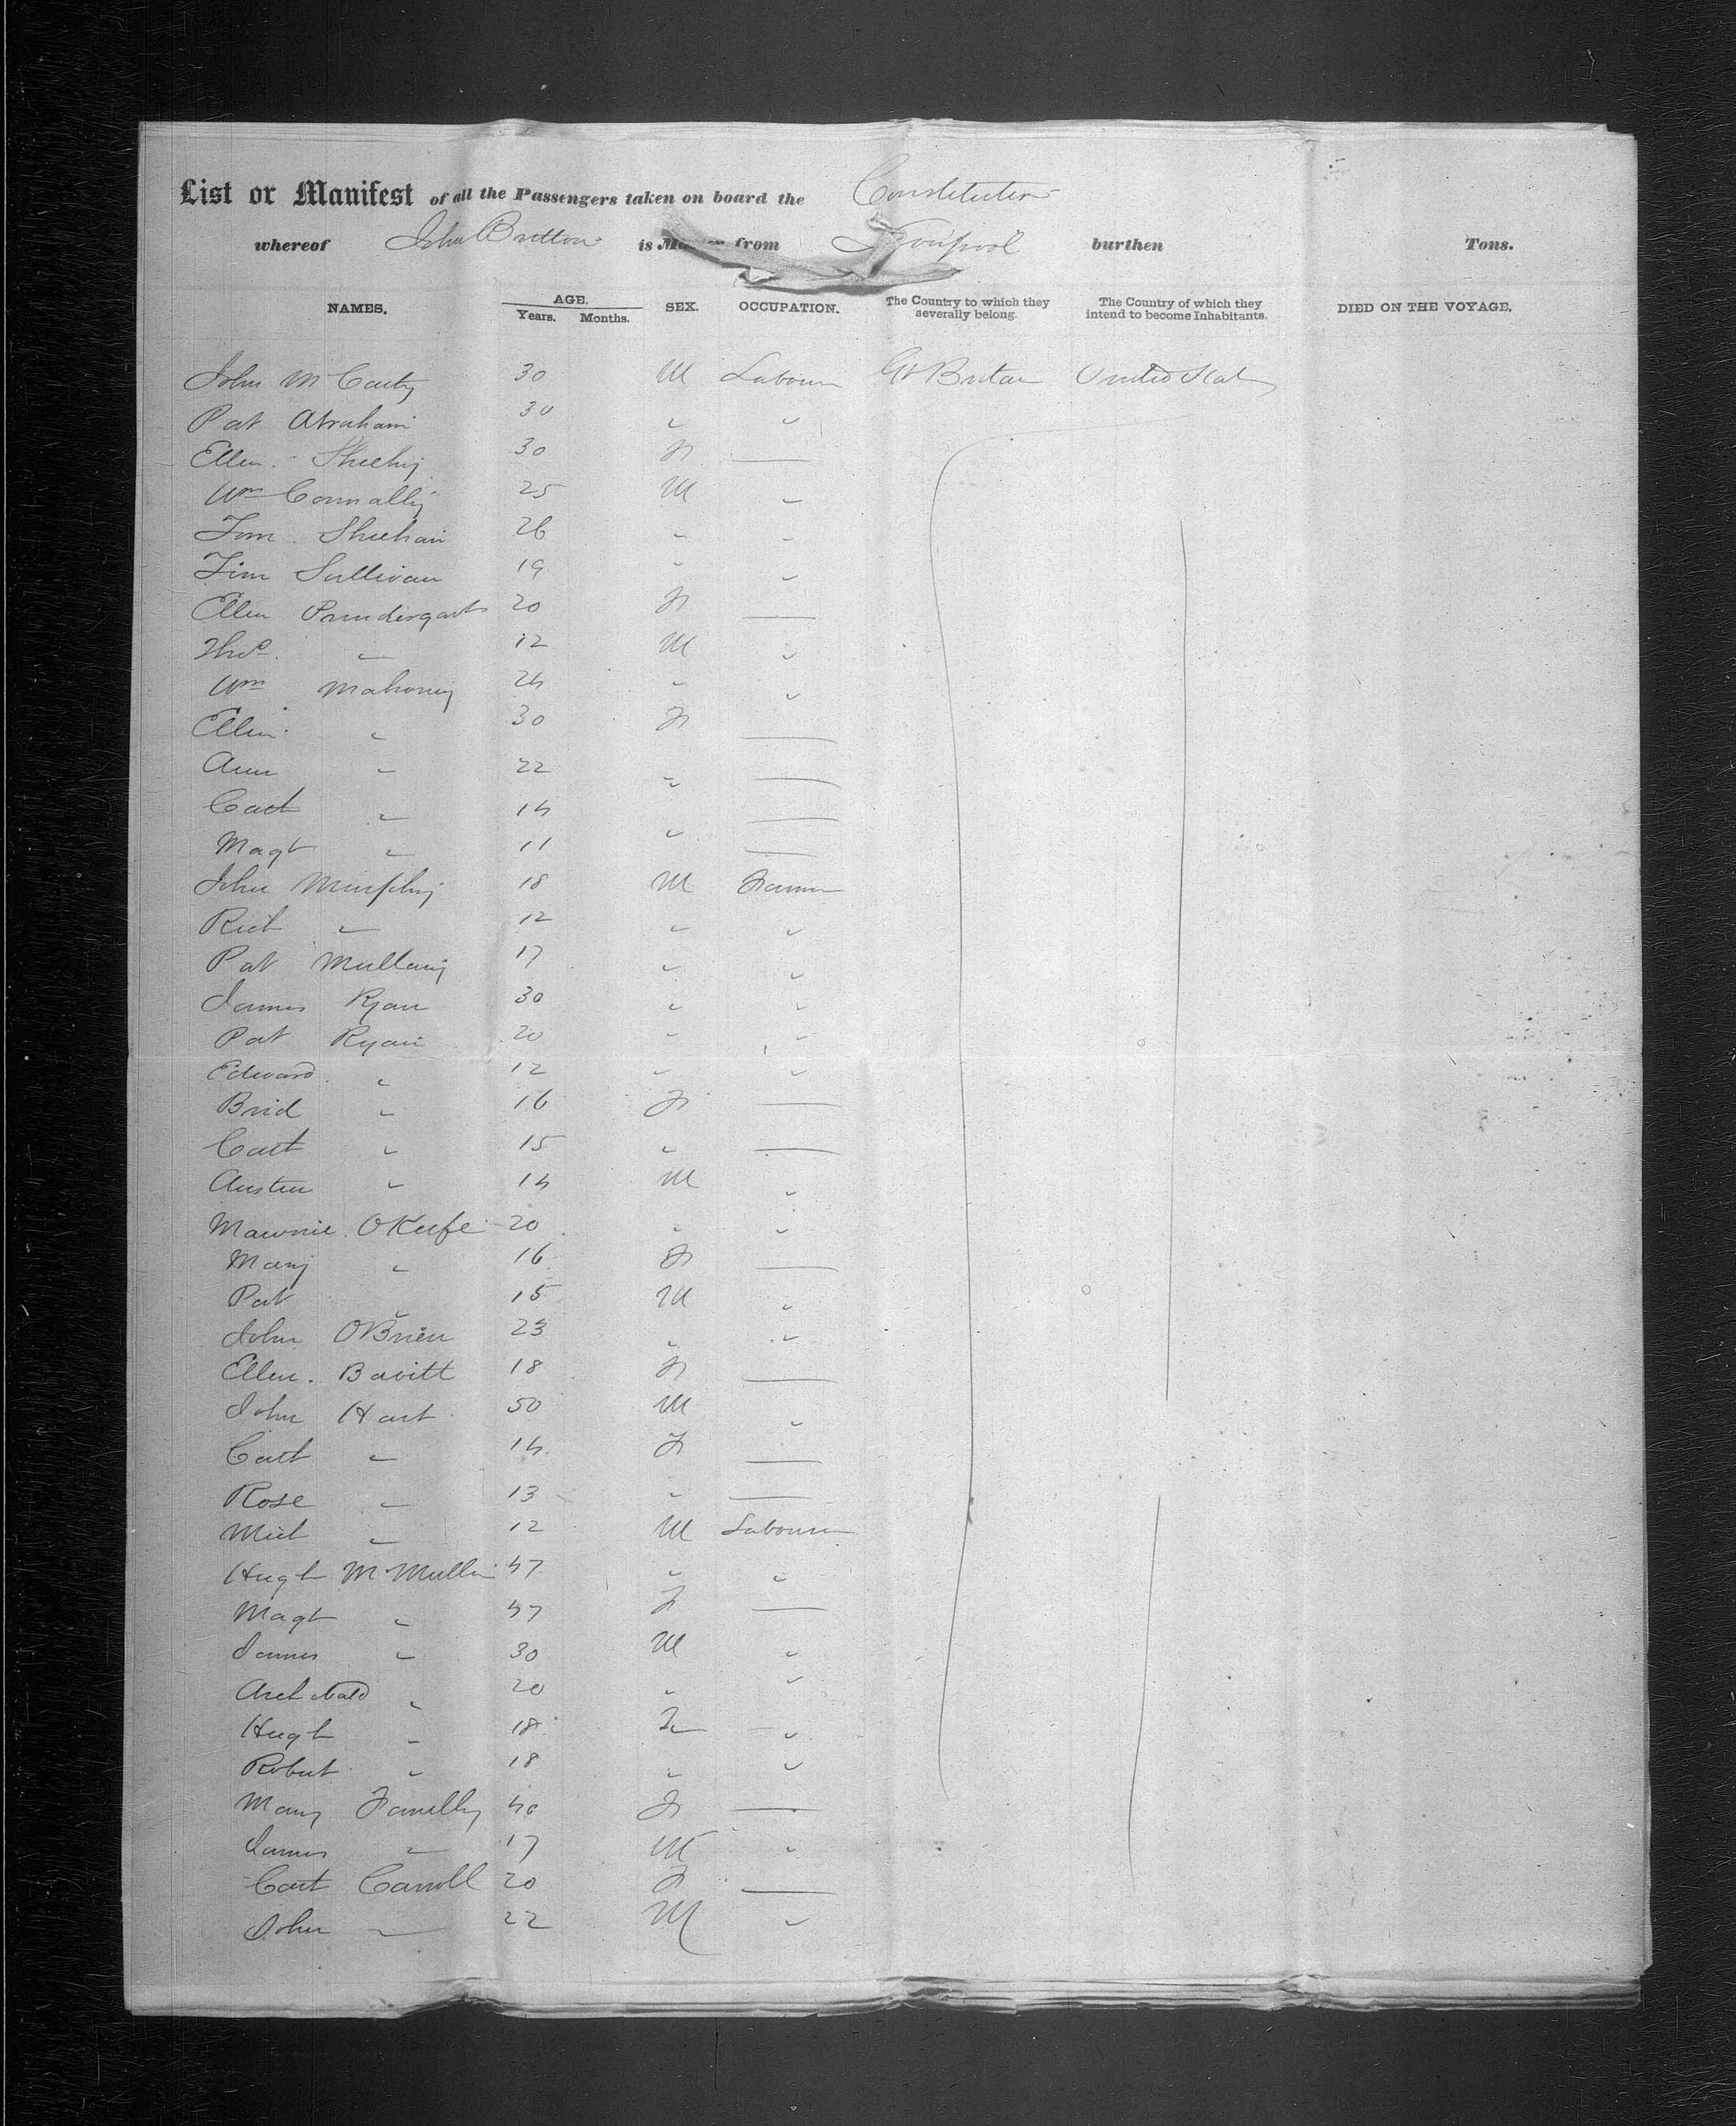 List or Manifest of all the Passengers taken on board the Constitution
whereof John Britton is Master from Liverpool burthen Tons.
NAMES. AGE. Years. Months. SEX. OCCUPATION. The Country to which they severally belong. The Country of which they intend to become Inhabitants. DIED ON THE VOYAGE.
John McCarty 30 M Labourer Gt Britain United States
Pat Abraham 30 " "
Ellen Sheehy 30 F —
Wm Connally 25 M "
Tom Sheehan 26 " "
Tim Sullivan 19 " "
Ellen Prundergast 20 F —
Thos " 12 M "
Wm Mahoney 24 " "
Ellen " 30 F —
Ann " 22 " —
Cath " 14 " —
Magt " 11 " —
John Murphy 18 M Farmer
Rich " 12 " "
Pat Mullany 17 " "
James Ryan 30 " "
Pat Ryan 20 " "
Edward " 12 " "
Brid " 16 F —
Cath " 15 " —
Austin " 14 M "
Mawrice OKeefe 20 " "
Mary " 16 F —
Pat " 15 M "
John OBrien 23 " "
Ellen Bavitt 18 F —
John Hart 50 M "
Cath " 14 F —
Rose " 13 " —
Mich " 12 M Labourer
Hugh McMullin 47 " "
Magt " 47 F —
James " 30 M "
Archibald " 20 " "
Hugh " 18 "
Robert " 18 " "
Mary 40 F —
James " 17 M "
Cath Carroll 20 F —
John " 22 M "